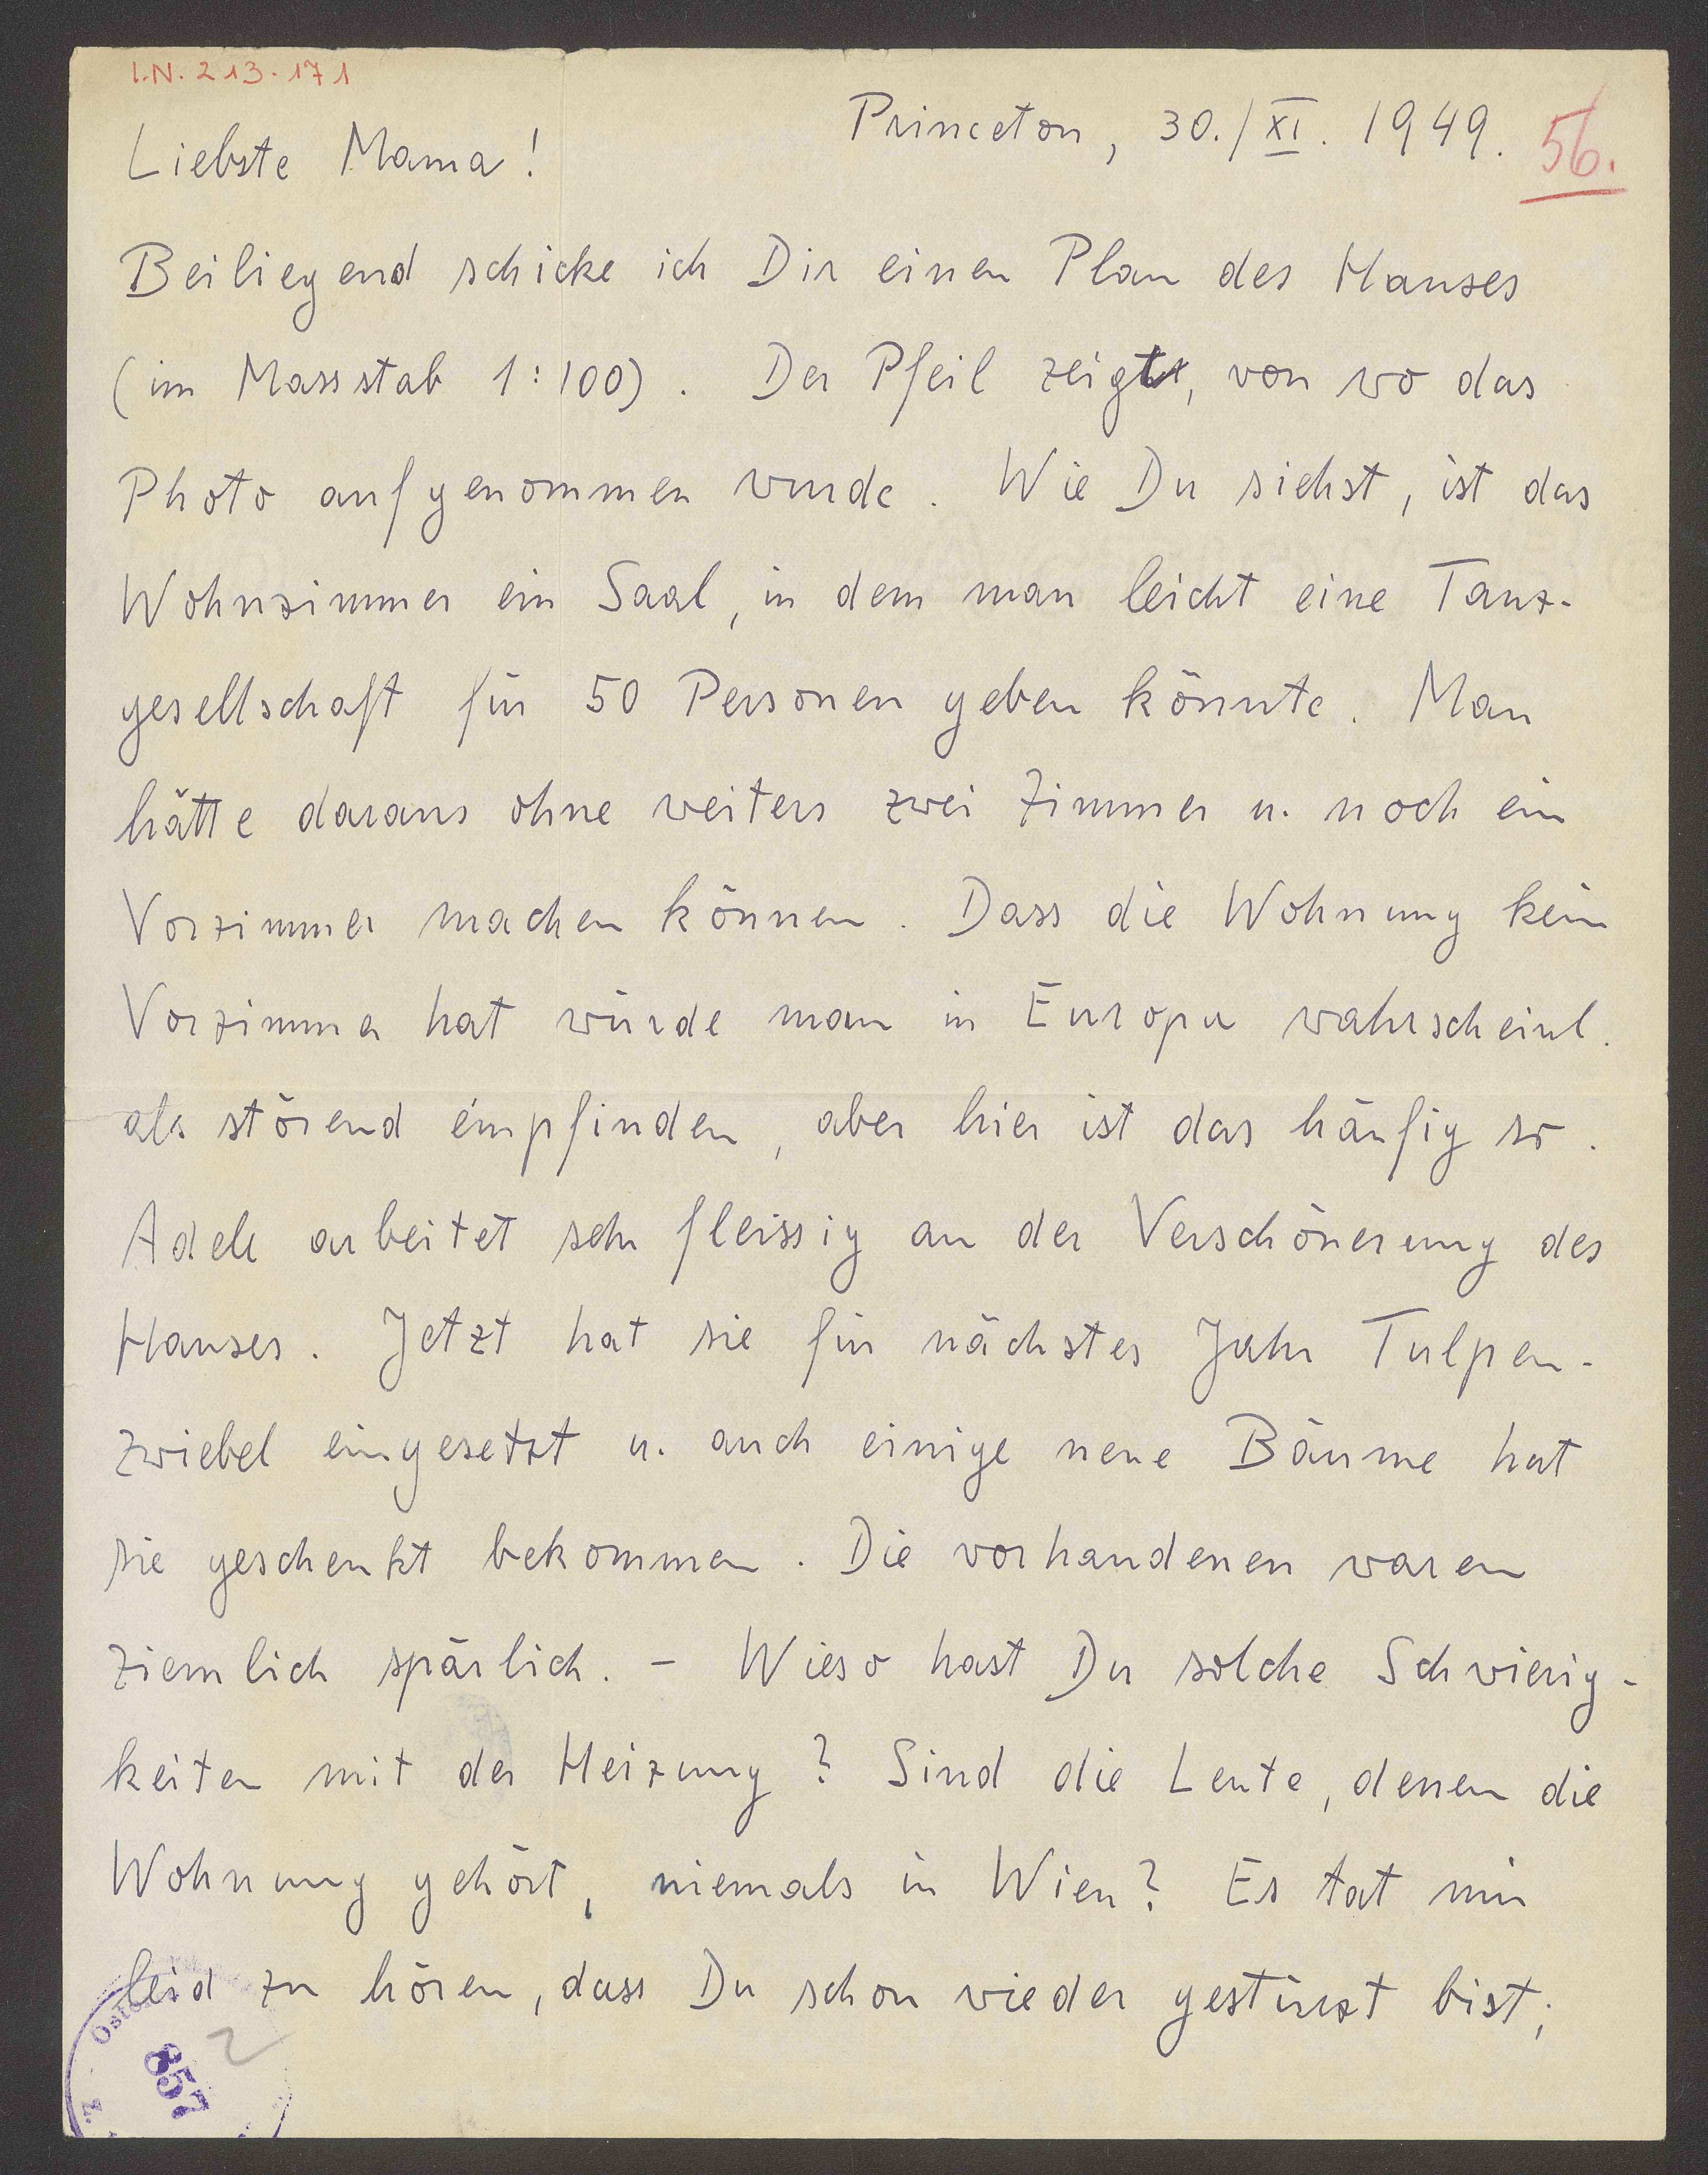 I.N. 213.171
Princeton, 30./XI. 1949.
56.
Liebste Mama!
Beiliegend schicke ich Dir einen Plan des Hauses
(im Massstab 1:100). Der Pfeil zeigt, von wo das
Photo aufgenommen wurde. Wie Du siehst, ist das
Wohnzimmer ein Saal, in dem man leicht eine Tanz-
gesellschaft für 50 Personen geben könnte. Man
hätte daraus ohne weiters zwei Zimmer u. noch ein
Vorzimmer machen können. Dass die Wohnung kein
Vorzimmer hat würde man in Europa wahrscheinl.
als störend empfinden, aber hier ist das häufig so.
Adele arbeitet sehr fleissig an der Verschönerung des
Hauses. Jetzt hat sie für nächstes Jahr Tulpen-
zwiebel eingesetzt u. auch einige neue Bäume hat
sie geschenkt bekommen. Die vorhandenen waren
ziemlich spärlich. - Wieso hast Du solche Schwierig-
keiten mit der Heizung? Sind die Leute, denen die
Wohnung gehört, niemals in Wien? Es tat mir
leid zu hören, dass Du schon wieder gestürzt bist;
2
857